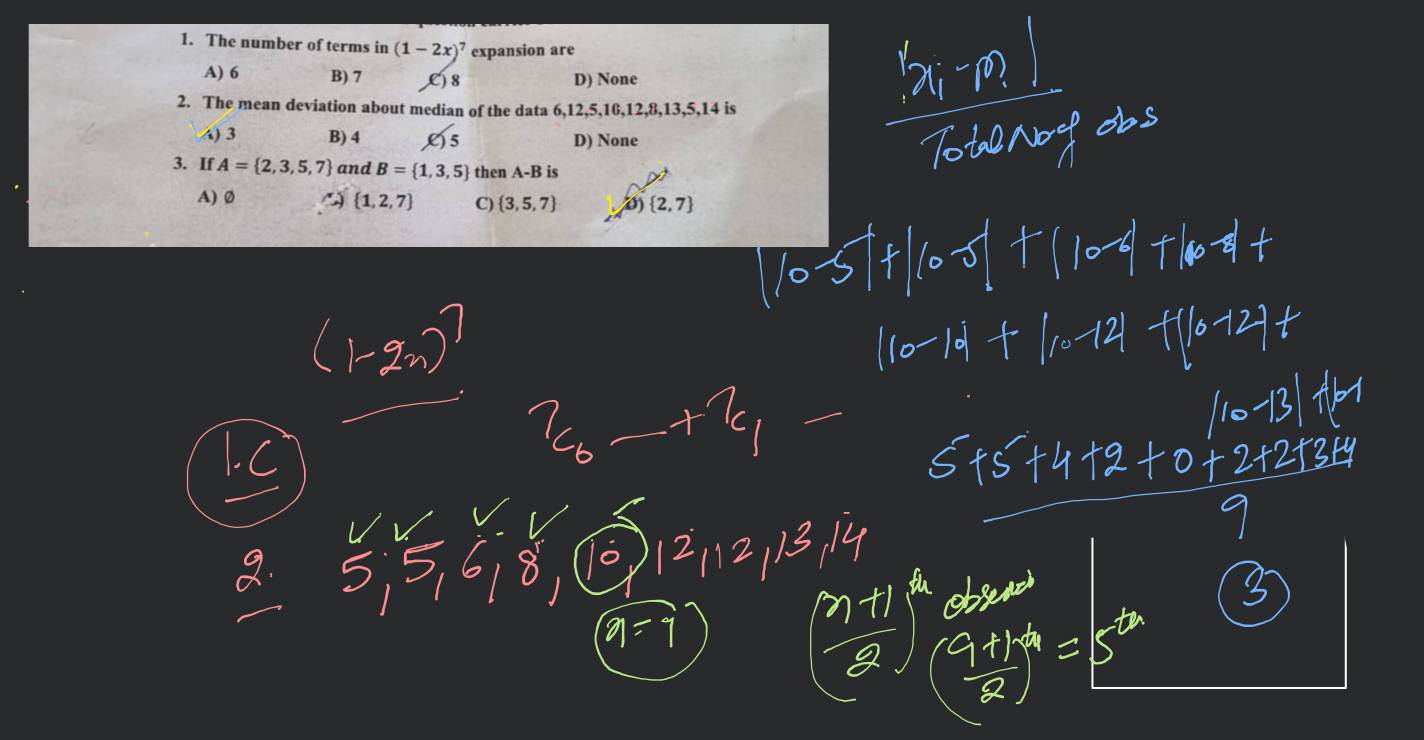 1. The number of terms in (1 – 2x)⁷ expansion are
A) 6 B) 7 C) 8 D) None
2. The mean deviation about median of the data 6,12,5,10,12,8,13,5,14 is
A) 3 B) 4 C) 5 D) None
3. If A = {2,3,5,7} and B = {1,3,5} then A-B is
A) ∅ {1,2,7} C) {3,5,7} D) {2,7}
|xi - m|
Total No of obs
|10-5|+|10-5| + |10-6| + |10-8| +
|10-10| + |10-12| + |10-12| +
|10-13| +
5+5+4+2+0+2+2+3+4
9
3
(1-2x)⁷
7c0 — + 7c1 —
1. C
2. 5, 5, 6, 8, 10, 12, 12, 13, 14
n = 9
(n+1 / 2)th
(9+1 / 2)th = 5th